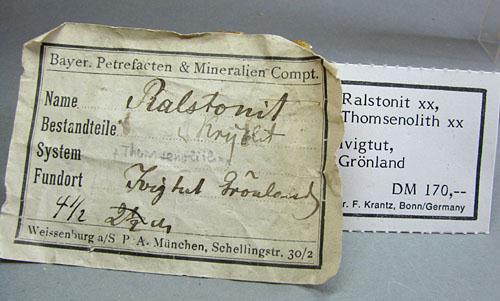 Bayer. Petrefacten & Mineralien Compt.
Name Ralstonit
Bestandteile Kryolit
System + Thomsenolith
Fundort Ivigtut Grönland
4 1/2 2 1/2
Weissenburg a/S P. A. München, Schellingstr. 30/2
Ralstonit xx,
Thomsenolith xx
Ivigtut,
Grönland
DM 170,--
r. F. Krantz, Bonn/Germany